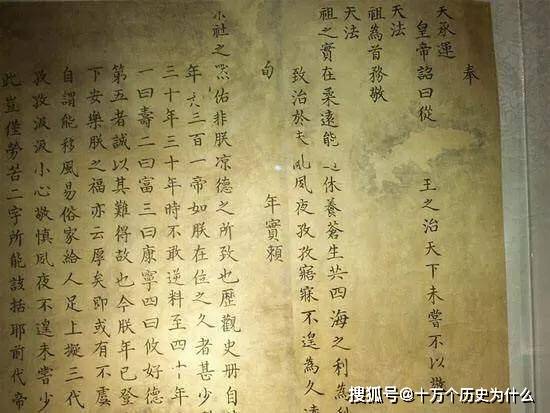 奉
天承運
皇帝詔曰從 王之治天下未嘗不以敬
天法
祖為首務敬
天法
祖之實在柔遠能 休養蒼生共四海之利為利
致治於 夙夜孜孜寤寐不遑為久遠
旬 年實賴
社之 佑非朕涼德之所致也歷觀史冊自
年 三百一帝如朕在位之久者甚少
三十年三十年時不敢逆料至四十年
一曰壽二曰富三曰康寧四曰攸好德
第五者誠以其難得故也今朕年已登
下安樂朕之福亦云厚矣即或有不虞
自謂能移風易俗家給人足上擬三代
孜孜汲汲小心敬慎夙夜不遑未嘗少
此豈僅勞苦二字所能該括耶前代帝
搜狐号@十万个历史为什么